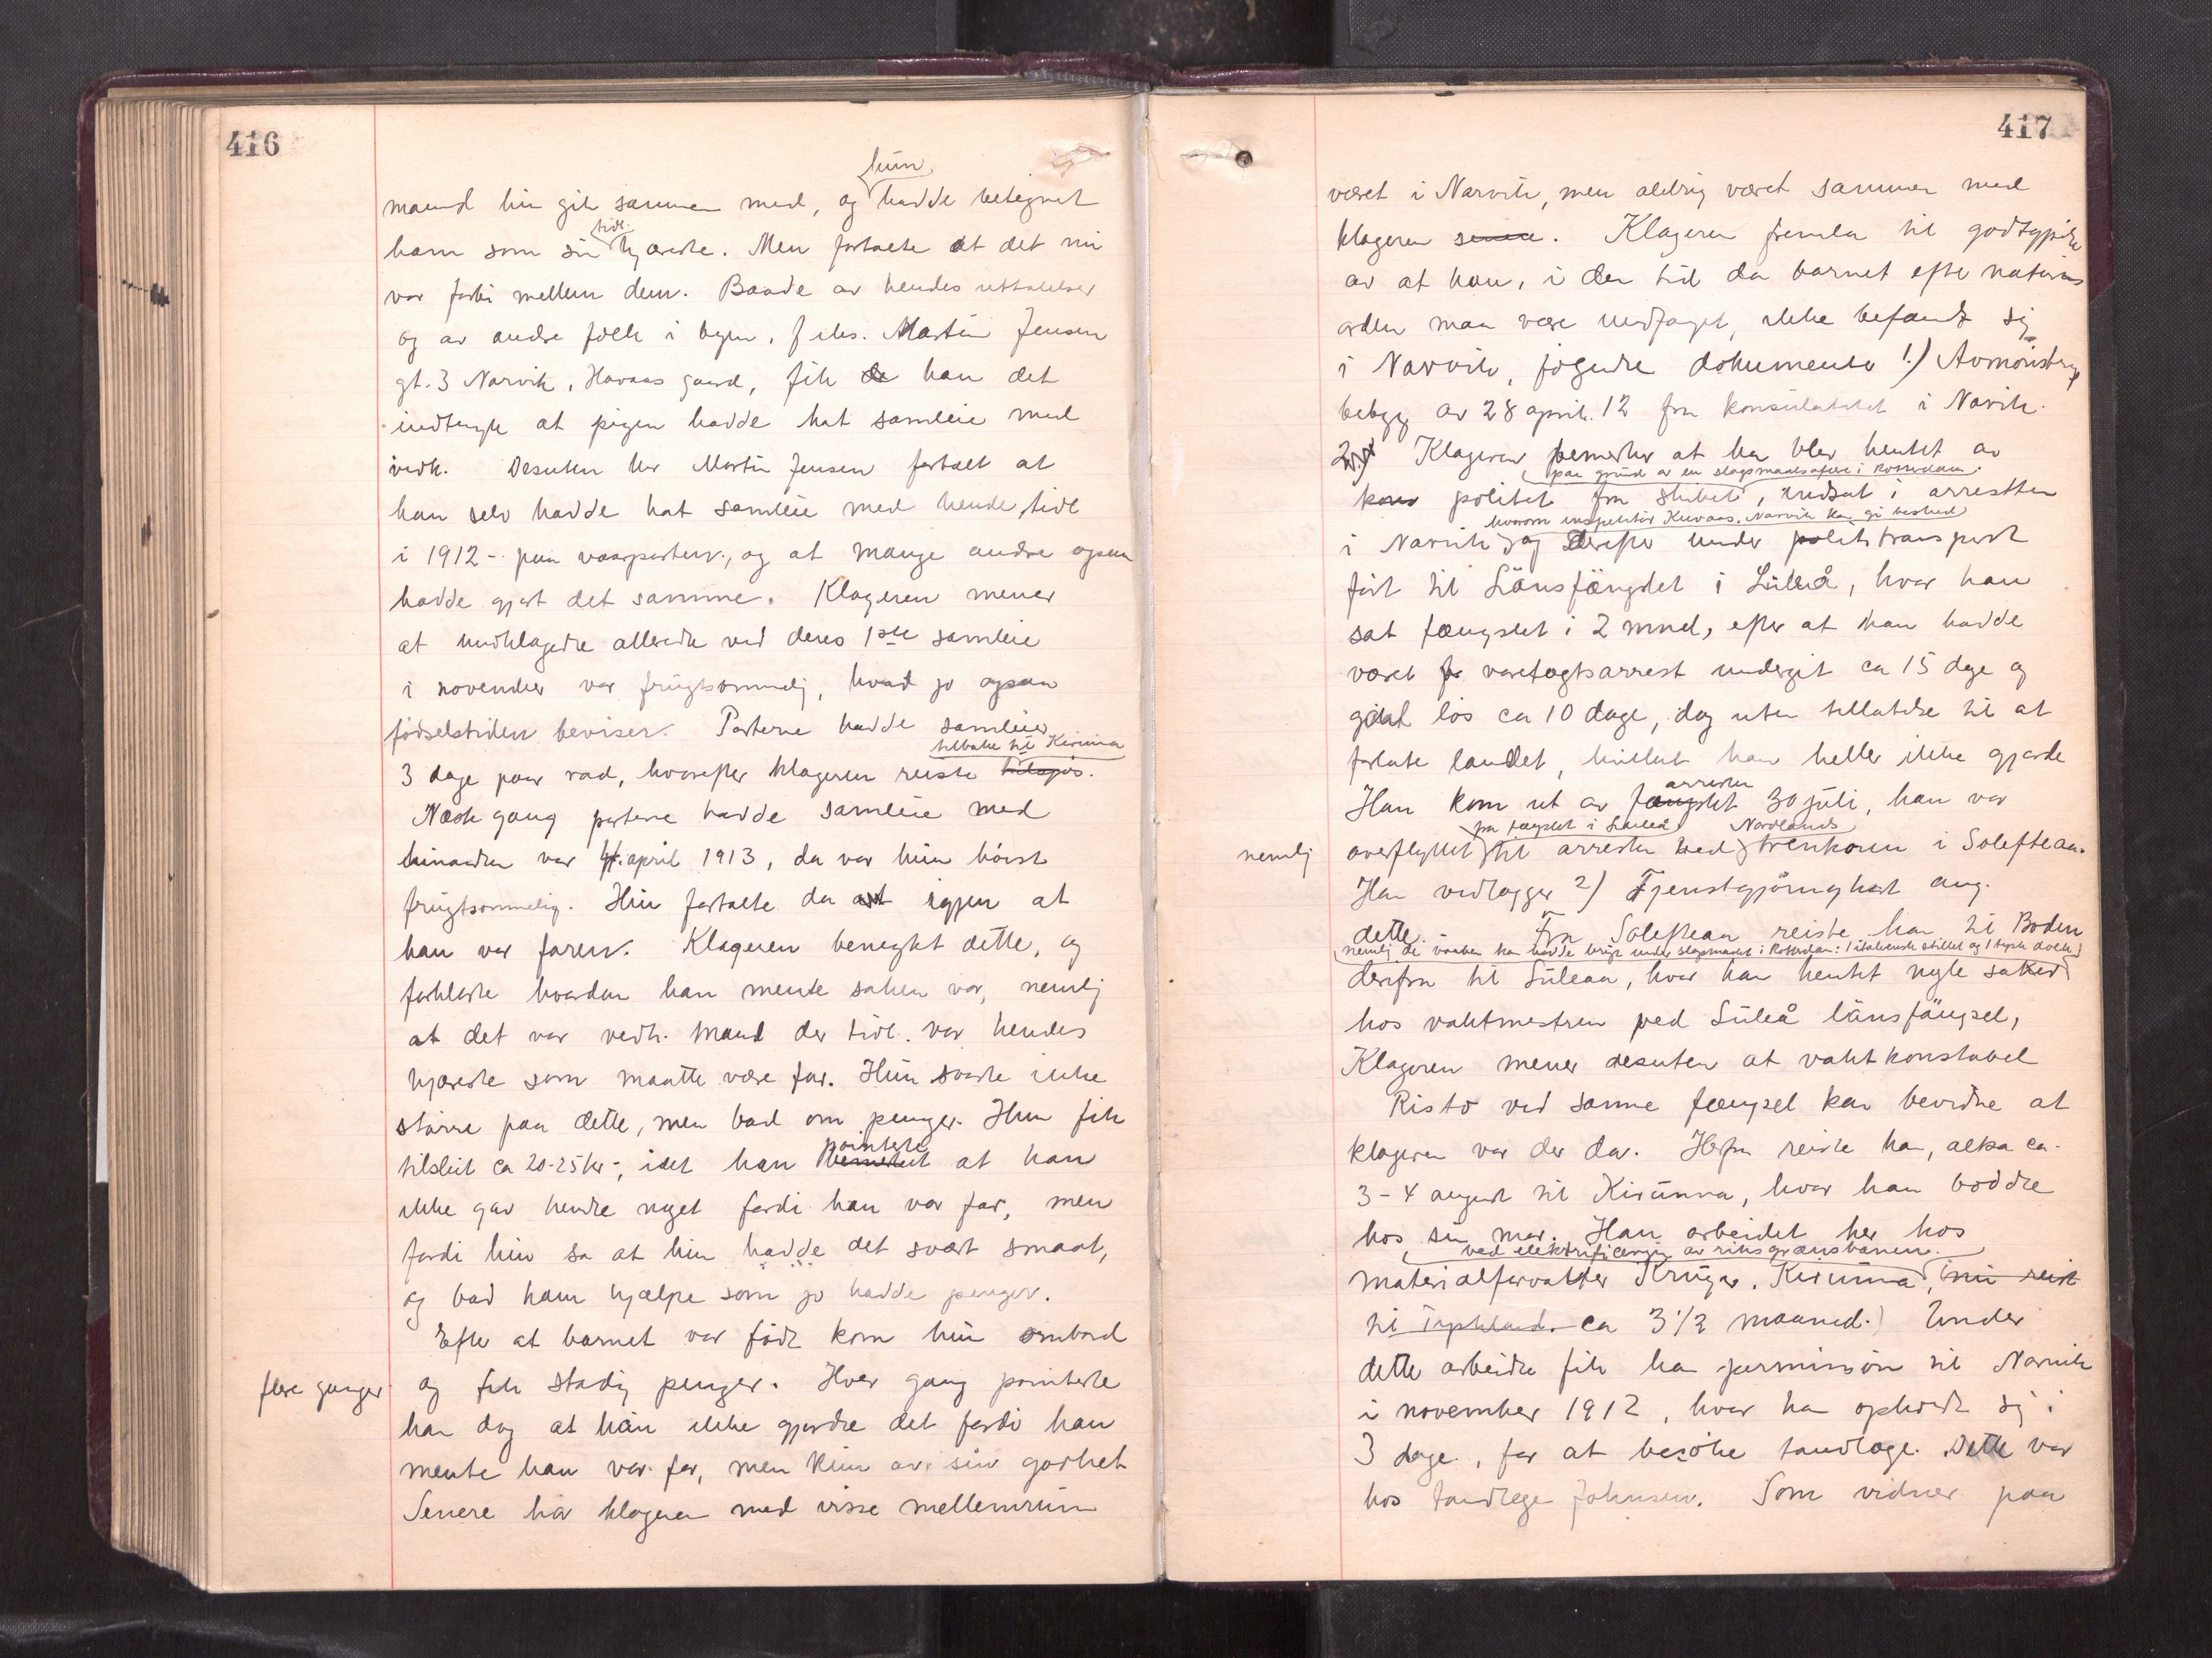 416
mand hun gik sammen med, og hun hadde betegnet
ham som sin tidl. kjæreste. Men fortalte at det nu
var forbi mellem dem. Baade av hendes uttalelser
og av andre folk i byen, f.eks. Martin Jensen
gt. 3 Narvik, Havaas gaard, fik de han det
indtryk at pigen hadde hat samleie med
vedk. Desuten har Martin Jensen fortalt at
han selv hadde hat samleie med hende, tidl
i 1912 - paa vaarparten, og at mange andre ogsaa
hadde gjort det samme. Klageren mener
at indklagede allerede ved deres 1ste samleie
i november var frugtsommelig, hvad jo ogsaa
fødselstiden beviser. Parterne hadde samleier
3 dage paa rad, hvorefter klageren reiste tilbake til Kiruna
Næste gang parterne hadde samleie med
hinanden var 4. april 1913, da var hun høist
frugtsommelig. Hun fortalte da igjen at
han var faren. Klageren benegtet dette, og
forklarte hvordan han mente saken var, nemlig
at det var vedk. mand der tidl. var hendes
kjæreste som maatte være far. Hun svarte ikke
større paa dette, men bad om penger. Hun fik
tilslut ca 20-25 kr-, idet han pointerte at han
ikke gav hende noget fordi han var far, men
fordi hun sa at hun hadde det svært smaat,
og bad ham hjælpe som jo hadde penger.
Efter at barnet var født kom hun ombord
flere ganger og fik stadig penger. Hver gang pointerte
han dog at han ikke gjorde det fordi han
mente han var far, men kun av sin godhet
Senere har klageren med visse mellemrum
417
været i Narvik, men aldrig været sammen med
klageren senere. Klageren fremla til godtgjørelse
av at han, i den tid da barnet efter naturens
orden maa være undfanget, ikke befandt sig
i Narvik, følgende dokumenter 1.) Avmønstrings
bevis av 28 april. 12 fra konsulatet i Narvik.
2.) Klageren bemerker at han blev hentet av
paa grund av en slagsmaalsaffære i Rotterdam.
politiet fra skibet, indsat i arresten
hvorom inspektør Kuvaas, Narvik kan gi besked
i Narvik og derefter under politransport
ført til Länsfängslet i Luleå, hvor han
sat fængslet i 2 mnd, efter at han hadde
været varetægtsarrest undergit ca 15 dage og
gaat løs ca 10 dage, dog uten tillatelse til at
forlate landet, hvilket han heller ikke gjorde
Han kom ut av fængslet arresten 30 juli, han var
nemlig overflyttet fra fængslet i Luleå til arresten ved Norrlands trenkoren i Solefteaa.
Han vedlægger 2) Tjenstgjøringkort ang.
dette. - Fra Solefteaa reiste han til Boden
nemlig de vaaben han hadde brugt under slagsmaalet i Rotterdam: 1 italiensk stillet og 1 tysk dolk
derfra til Luleaa, hvor han hentet nogle saker
hos vaktmestren ved Luleå länsfängsel,
Klageren mener desuten at vaktkonstabel
Risto ved samme fængsel kan bevidne at
klageren var der da. Herfra reiste han, altsaa ca.
3-4 august til Kirunna, hvor han bodde
hos sin mor. Han arbeidet her hos
ved elektrificering av riksgrænsbanen.
materialforvalter Krüger. Kiruna, nu reist
til Tyskland. ca 3 1/2 maaned.) Under
dette arbeide fik han permission til Narvik
i november 1912, hvor han opholdt sig i
3 dage, for at besøke tandlæge. Dette var
hos tandlæge Johnsen. Som vidner paa